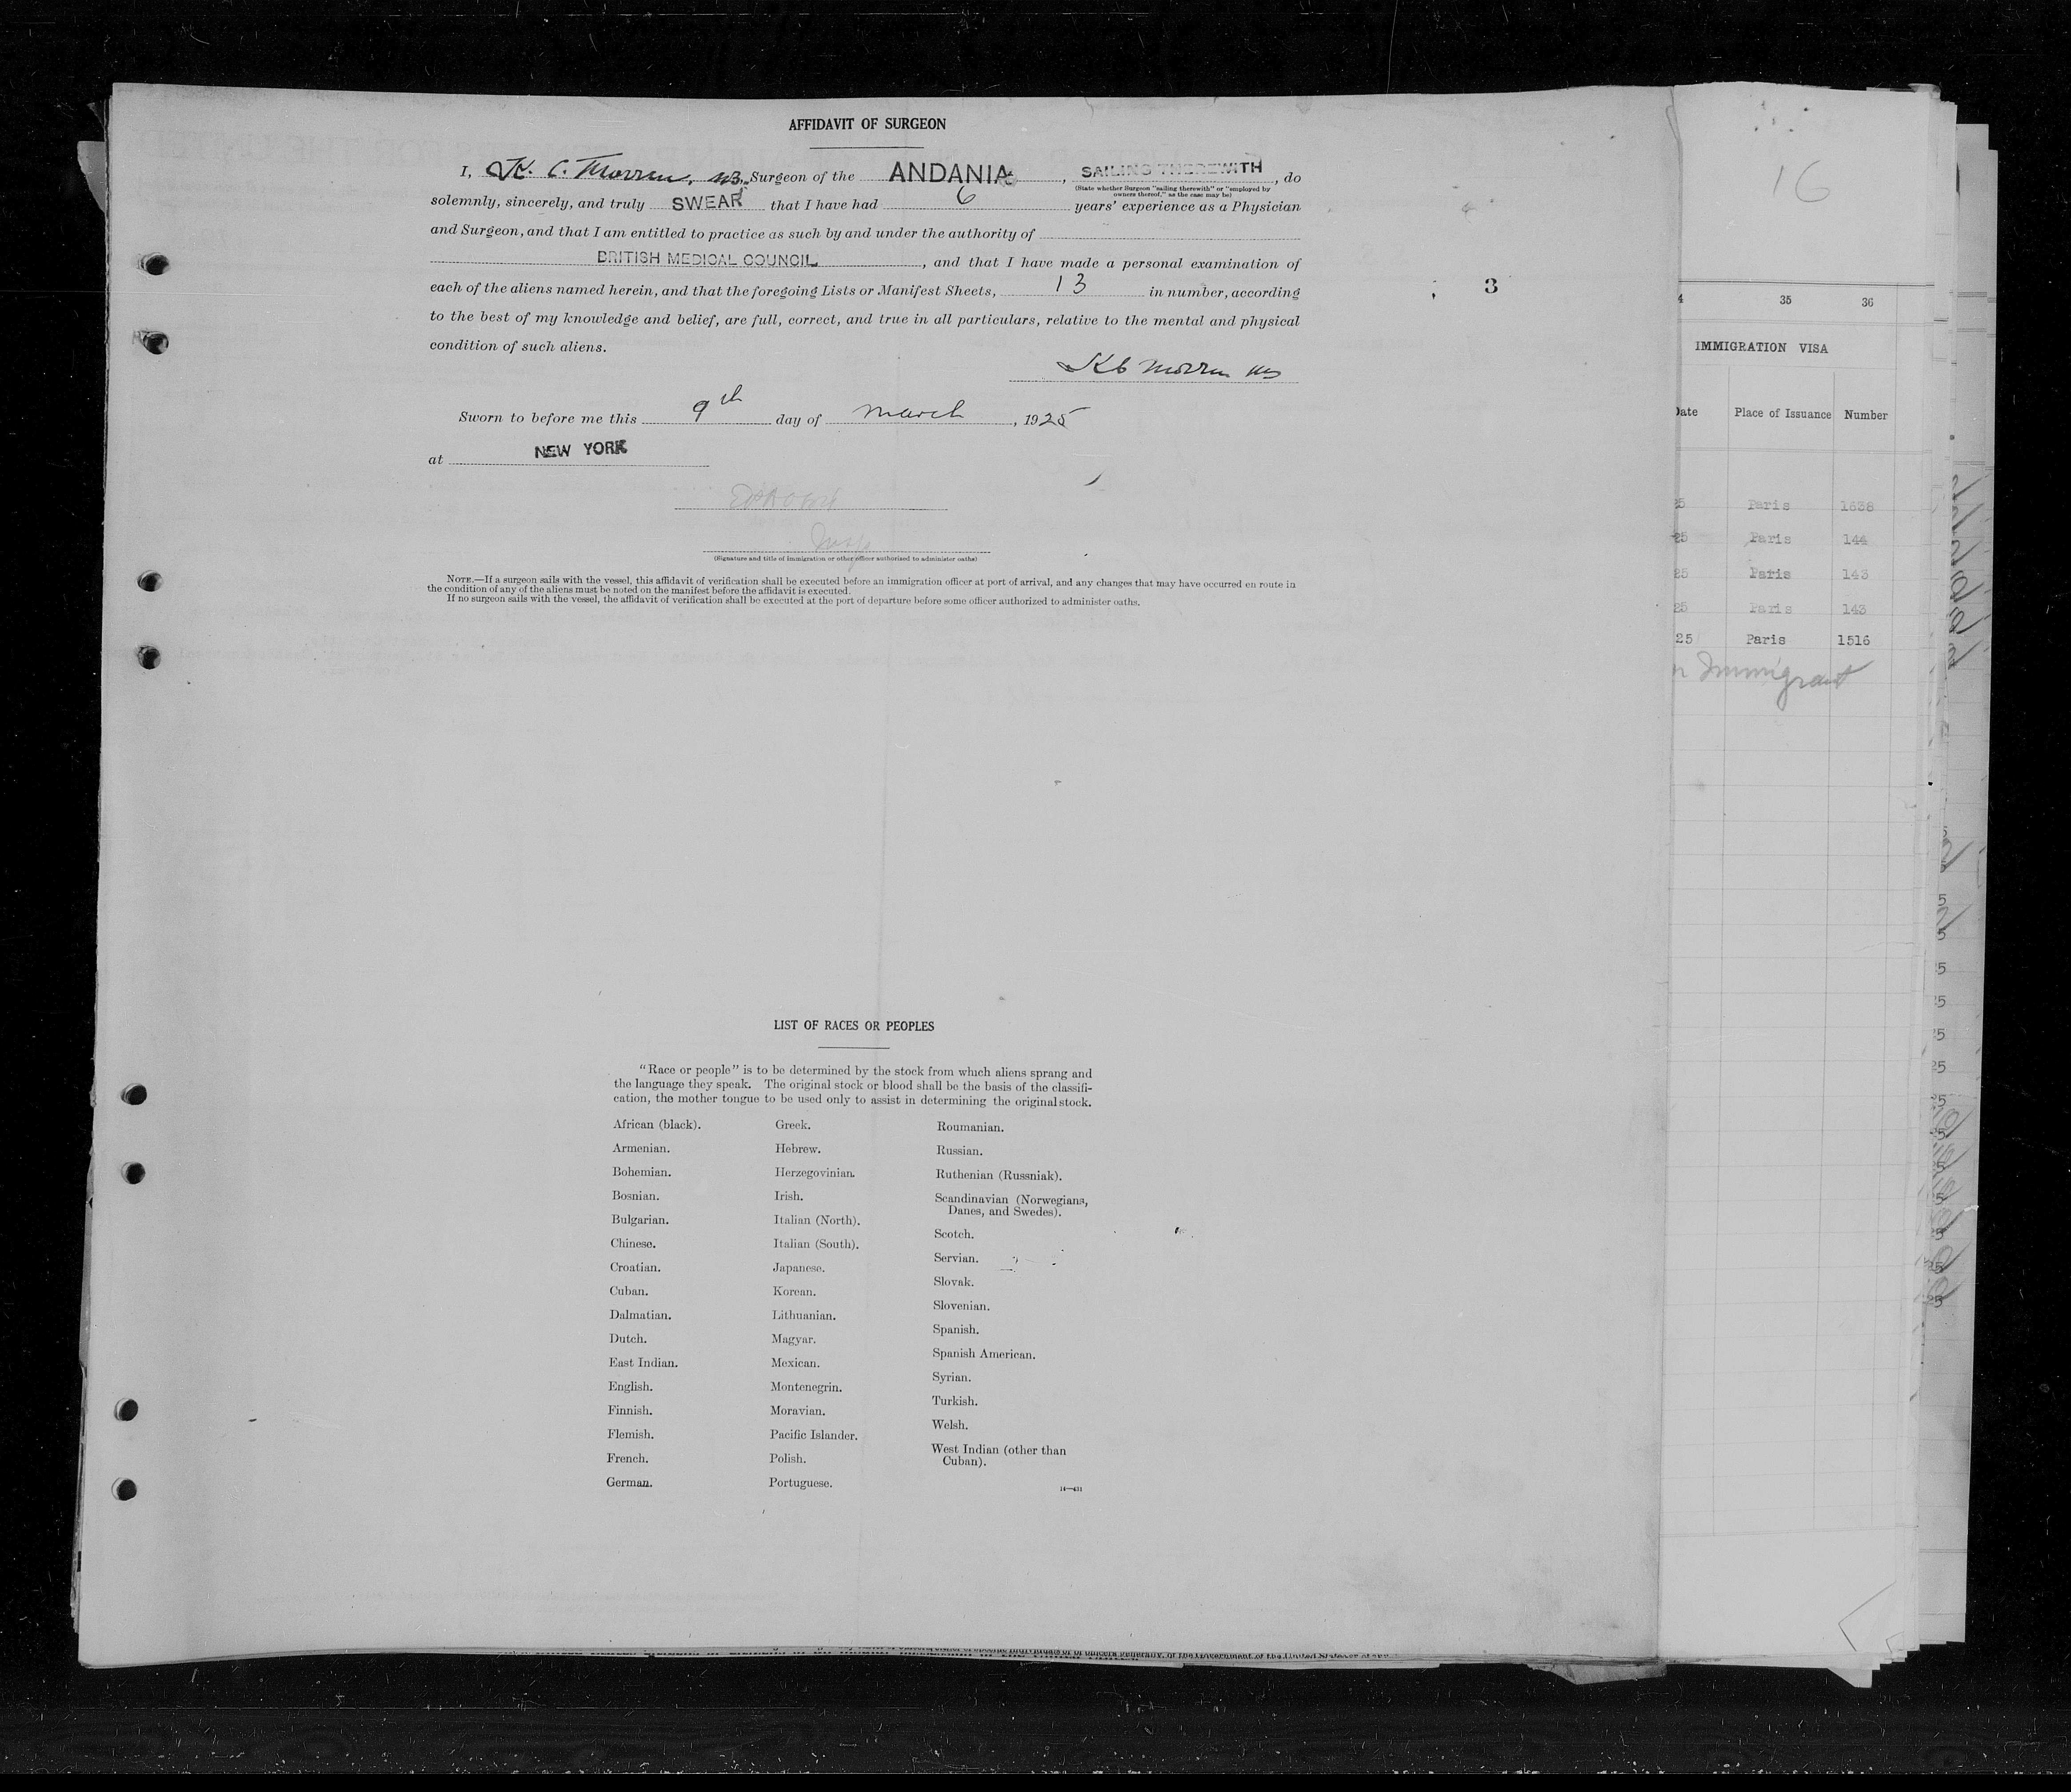 AFFIDAVIT OF SURGEON
I, K. C. Morren, MB. Surgeon of the ANDANIA, SAILING THEREWITH, do
(State whether Surgeon "sailing therewith" or "employed by
owners thereof," as the case may be)
solemnly, sincerely, and truly SWEAR that I have had 6 years' experience as a Physician
and Surgeon, and that I am entitled to practice as such by and under the authority of
BRITISH MEDICAL COUNCIL, and that I have made a personal examination of
each of the aliens named herein, and that the foregoing Lists or Manifest Sheets, 13 in number, according
to the best of my knowledge and belief, are full, correct, and true in all particulars, relative to the mental and physical
condition of such aliens.
K C Morren MB
Sworn to before me this 9th day of March, 1925
at NEW YORK
(Signature and title of immigration or other officer authorized to administer oaths)
NOTE.—If a surgeon sails with the vessel, this affidavit of verification shall be executed before an immigration officer at port of arrival, and any changes that may have occurred en route in
the condition of any of the aliens must be noted on the manifest before the affidavit is executed.
If no surgeon sails with the vessel, the affidavit of verification shall be executed at the port of departure before some officer authorized to administer oaths.
3
LIST OF RACES OR PEOPLES
"Race or people" is to be determined by the stock from which aliens sprang and
the language they speak. The original stock or blood shall be the basis of the classifi-
cation, the mother tongue to be used only to assist in determining the original stock.
African (black).
Armenian.
Bohemian.
Bosnian.
Bulgarian.
Chinese.
Croatian.
Cuban.
Dalmatian.
Dutch.
East Indian.
English.
Finnish.
Flemish.
French.
German.
Greek.
Hebrew.
Herzegovinian.
Irish.
Italian (North).
Italian (South).
Japanese.
Korean.
Lithuanian.
Magyar.
Mexican.
Montenegrin.
Moravian.
Pacific Islander.
Polish.
Portuguese.
Roumanian.
Russian.
Ruthenian (Russniak).
Scandinavian (Norwegians,
Danes, and Swedes).
Scotch.
Servian.
Slovak.
Slovenian.
Spanish.
Spanish American.
Syrian.
Turkish.
Welsh.
West Indian (other than
Cuban).
14—431
16
35 36
IMMIGRATION VISA
Date Place of Issuance Number
25 Paris 1638
25 Paris 144
25 Paris 143
25 Paris 143
25 Paris 1516
Immigrant